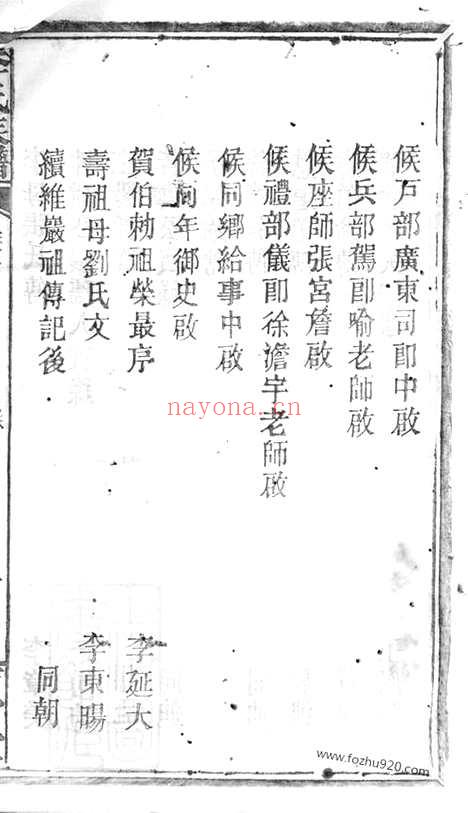 候戸部廣東司郎中啟
候兵部駕郎喻老師啟
候座師張宮詹啟
候禮部儀郎徐澹宇老師啟
候同鄉給事中啟
候同年御史啟
賀伯勑祖榮最序 李延大
壽祖母劉氏文 李東暘
續維巖祖傳記後 同朝
nayona.cn
www.fozhu920.com